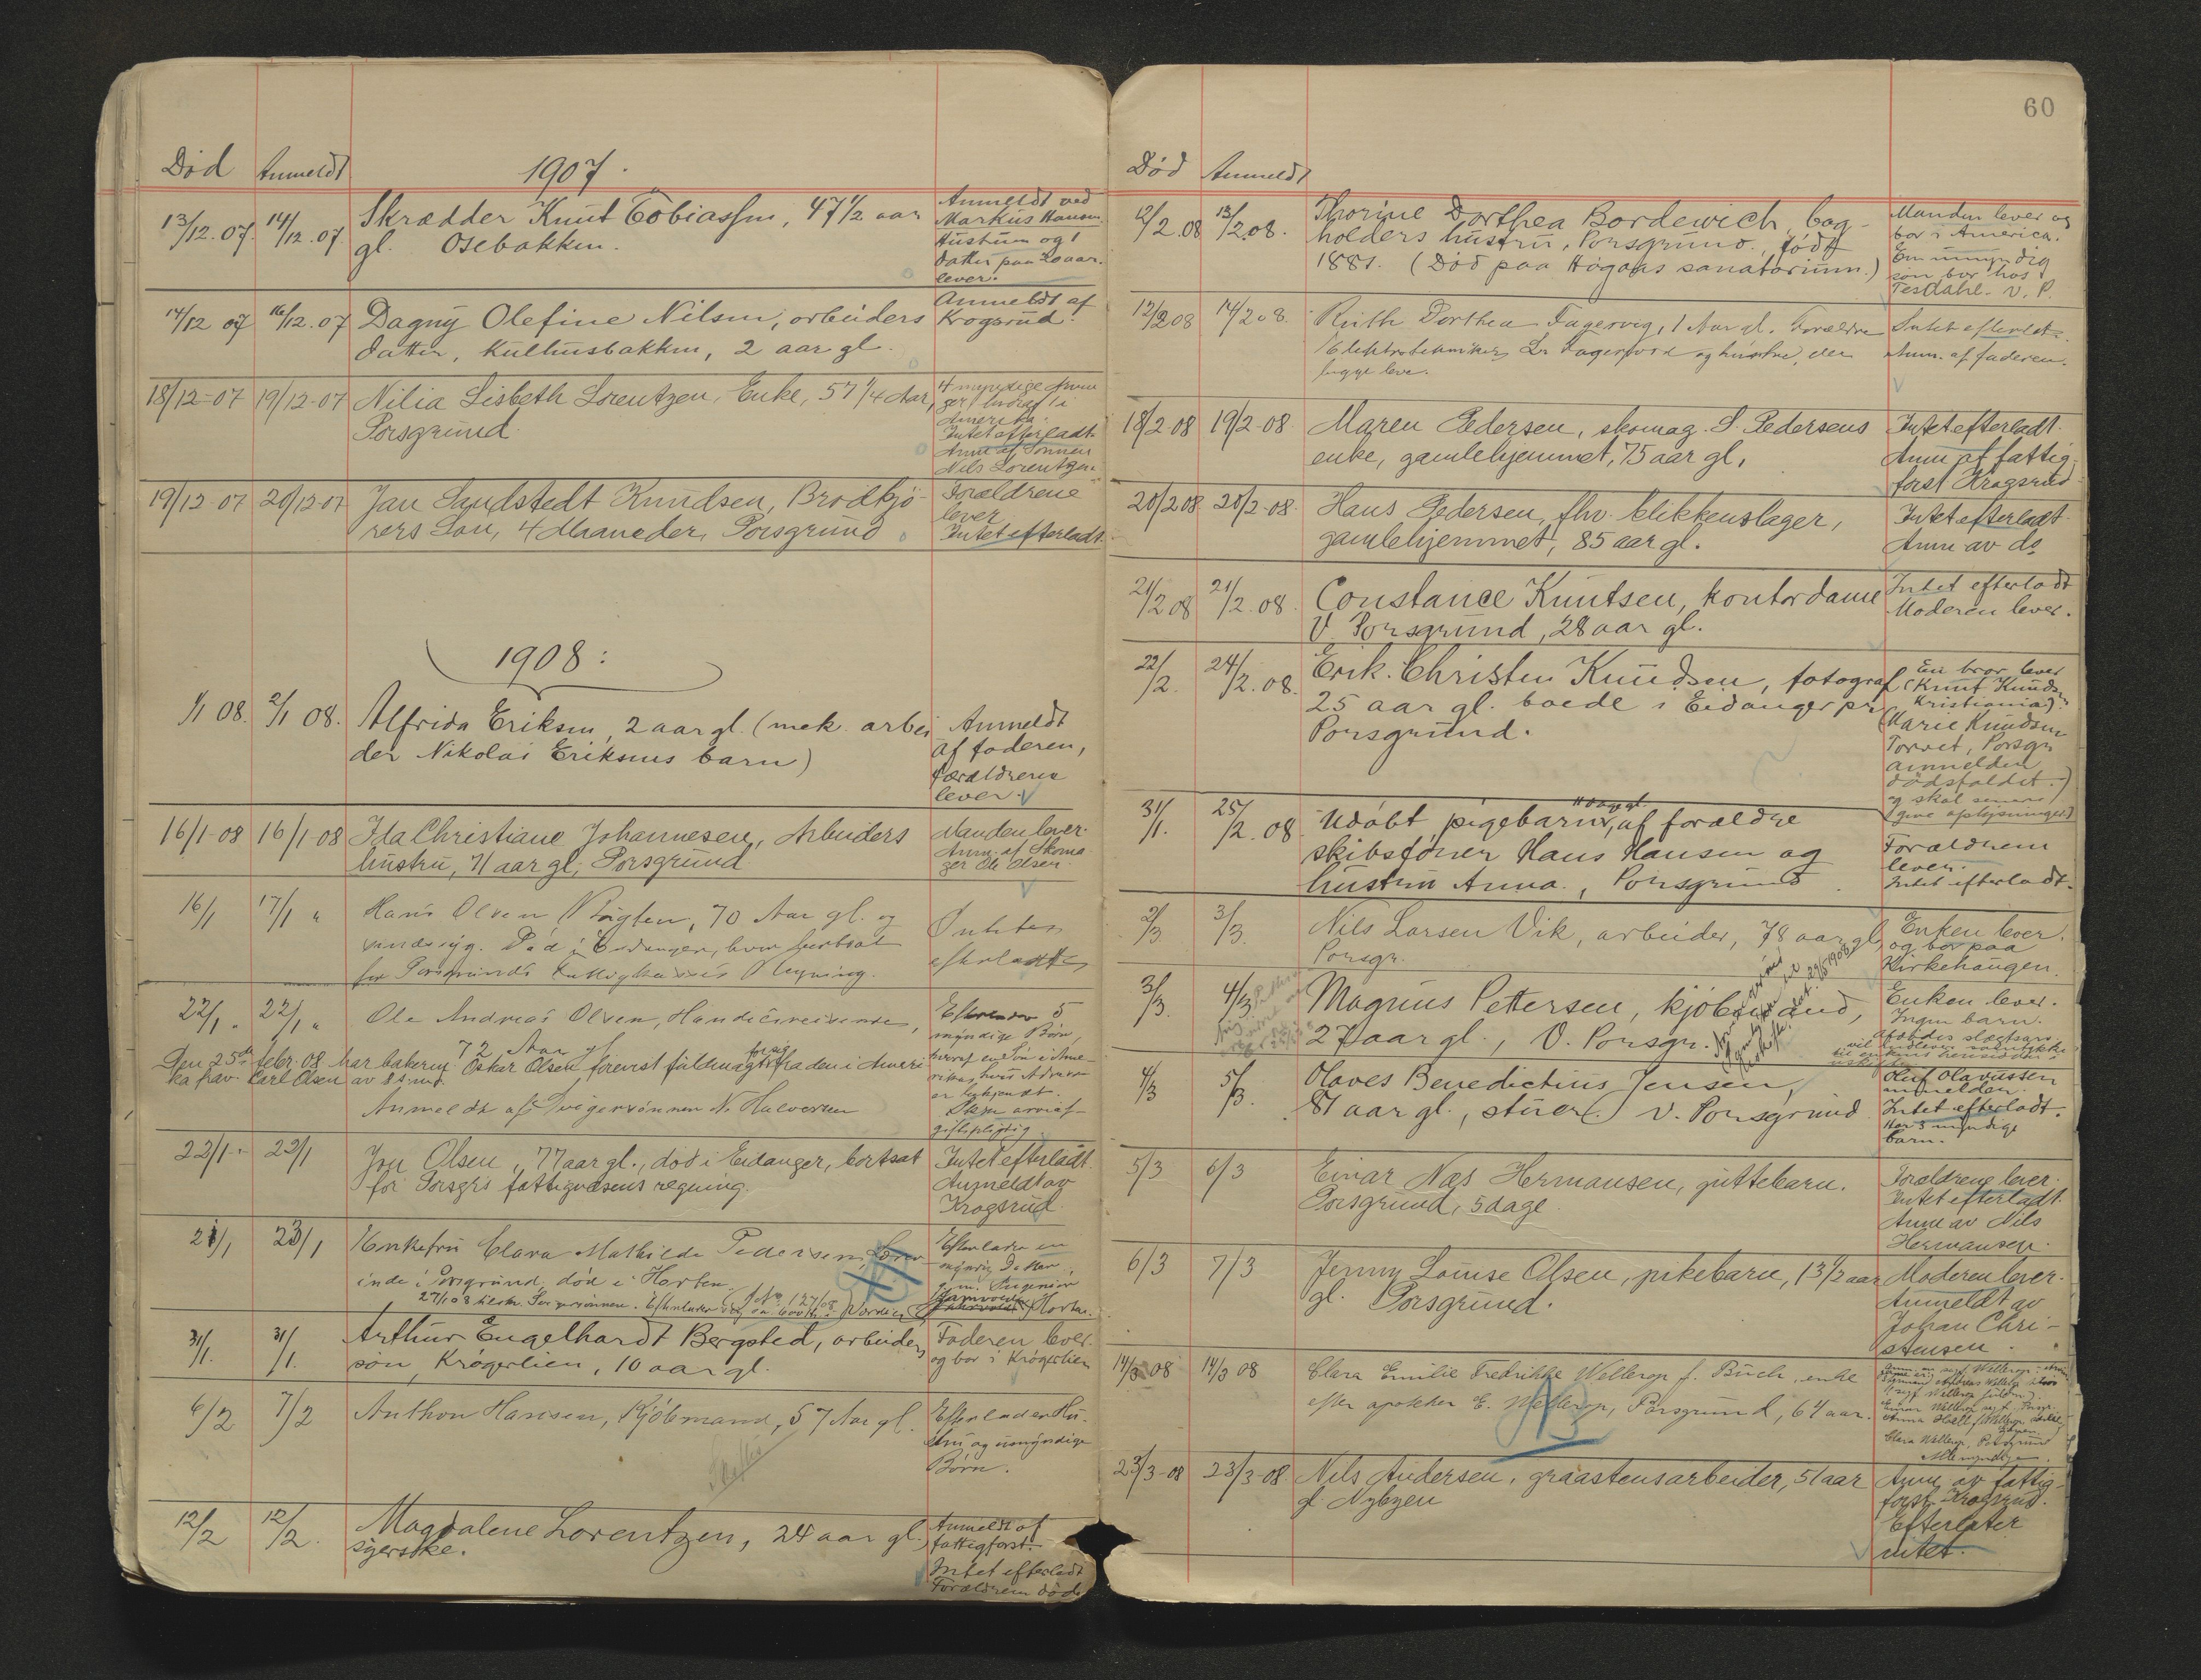 Död Anmeldt 1907.
13/12.07. 14/12.07 Skrædder Knut Tobiassen, 47 1/2 aar
gl. Osebakken.
Anmeldt ved
Markus Hansen.
Hustruen og 1
datter paa 20 aar.
lever.
14/12 07 16/12.07 Dagny Olefine Nilsen, arbeiders
datter, Kulhusbakken, 2 aar gl.
Anmeldt af
Krogsrud.
18/12-07 19/12-07 Nilia Lisbeth Lorentzen, Enke, 57 1/4 Aar,
Porsgrund.
4 myndige
hvoraf 1 i
Amerika.
Intet efterladt.
Anm af Sønnen
Nils Lorentzen.
19/12-07 20/12-07 Jan Sandstedt Knudsen, Brødkjö-
rers Søn, 4 Maaneder, Porsgrund
Forældrene
lever
Intet efterladt.
1908:
1/1 08. 2/1 08. Alfrida Eriksen, 2 aar gl. (mek. arbei
der Nikolai Eriksens barn)
Anmeldt
af faderen,
Forældrene
lever.
16/1-08 16/1-08 Ida Christiane Johannesen, Arbeiders
hustru, 71 aar gl, Porsgrund
Manden lever.
Anm. af Skoma
ger Ole Olsen.
16/1 17/1 " Hans Olsen 70 Aar gl. og
sindssyg. Död i Eidanger, hvor bortsat
for Porsgrunds Fattigkasses Regning.
Intet
efterladt
22/1 " 22/1 " Ole Andreas Olsen, Handelsreisende,
72 Aar gl.
Den 25de febr. 08 har bakerm Oskar Olsen forevist fuldmagt for sig fra den i Ameri
ka frav. Carl Olsen av 8 ds. md.
Anmeldt af Svigersönnen N. Halvorsen
Efterlader 5
myndige Börn,
hvoraf en Sön i Ame-
rika, hvis Adresse
er ubekjendt.
arveaf-
giftspligtig
22/1 " 23/1 Jon Olsen, 77 aar gl., död i Eidanger, bortsat
for Porsgr's fattigvæsens regning.
Intet efterladt.
Anmeldt av
Krogsrud
21/1 23/1 Enkefru Clara Mathilde Pedersen,
inde i Porsgrund, död i Horten
27/1 08
Efterlader en
myndig Datter,
g. m. Ingeniör
Horten.
31/1. 31/1. Arthur Engelhardt Bergsted, arbeiders
søn, Krøgerlien, 10 aar gl.
Faderen lever.
og bor i Krögerlien
6/2 7/2 Anthon Hansen, Kjöbmand, 57 Aar gl.
Skifte
Efterlader Hu-
stru og umyndige
Börn.
12/2 12/2. Magdalene Lorentzen, 24 aar gl.
syerske.
Anmeldt af
fattigforst.
Intet efterladt
Forældrene döde
60
Död Anmeldt
12/2.08 13/2.08. Thorine Dorthea Bordewich, bog-
holders hustru, Porsgrund. født
1881. (Død paa Högaas sanatorium.)
Manden lever og
bor i America.
En umyndig
sön bor hos
Tesdahl. V. P.
12/2 08 14/2 08. Ruth Dorthea Fagervig, 1 Aar gl. Forældre
Elektrotekniker og hustru, der
begge leve.
Intet efterladt.
Anm. af faderen.
18/2-08 19/2-08 Maren Pedersen, skomag. S. Pedersens
enke, gamlehjemmet, 75 aar gl.
Intet efterladt.
Anm af fattig-
forst Krogsrud
20/2 08 20/2-08. Hans Pedersen, fhv. blikkenslager,
gamlehjemmet, 85 aar gl.
Intet efterladt.
Anm av do
21/2 08 21/2.08. Constance Knutsen, kontordame
V. Porsgrund, 28 aar gl.
Intet efterladt
Moderen lever.
22/2. 24/2.08. Erik Christen Knudsen, fotograf
25 aar gl. boede i Eidanger pr
Porsgrund.
En bror lever
(Knut Knudsen
Kristiania).
(Marie Knudsen
Torvet, Porsgr
anmelder
dödsfaldet.)
og skal senere
give oplysninger)
31/1. 25/2.08 Udöbt pigebarn, af forældre
skibsfører Hans Hansen og
hustru Anna., Porsgrund
Forældrene
lever.
Intet efterladt.
2/3 3/3. Nils Larsen Vik, arbeider, 78 aar gl,
Porsgr.
Enken lever.
og bor paa
Kirkehaugen.
3/3. 4/3. Magnus Pettersen, kjöbmand,
27 aar gl., V. Porsgr.
Enken lever.
Ingen barn.
4/3 5/3. Olaves Benedictius Jensen,
81 aar gl., stuer. V. Porsgrund
Oluf Olavussen
anmelder.
Intet efterladt.
Har 3 myndige
barn.
5/3 6/3 Einar Næs Hermansen, guttebarn.
Porsgrund, 5 dage
Forældrene lever.
Intet efterladt.
Anm av Nils
Hermansen.
6/3 7/3 Jenny Louise Olsen, pikebarn, 13 1/2 aar
gl. Porsgrund.
Moderen lever.
Anmeldt av
Johan Chri-
stensen.
14/3 08 14/3 08 Clara Emilie Fredrikke Wellerop f. Buch, enke
efter apotheker E. Wellerop, Porsgrund, 64 aar.
NB
Clara Wellerop, Porsgrund
Alle myndige.
23/3-08 23/3-08 Nils Andersen, graastensarbeider, 51 aar
gl. Nybyen
Anm av fattig-
forst. Krogsrud.
Efterlater
intet.